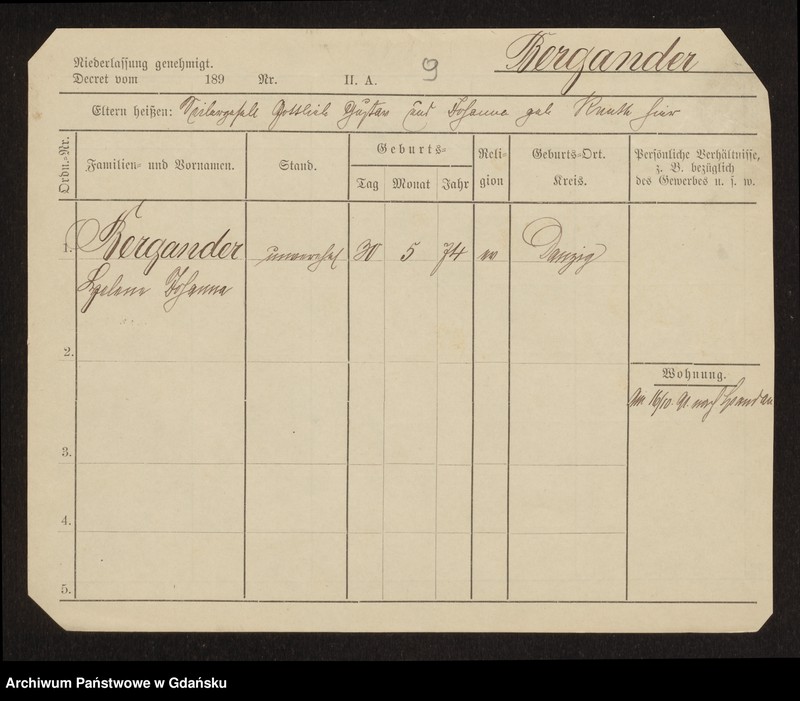 Niederlassung genehmigt.
Decret vom 189 Nr. II. A. 9
Bergander
Eltern heißen: Gottlieb Gustav und Johanna geb. hier
Ordn.-Nr.
Familien- und Vornamen.
Stand.
Geburts-
Tag
Monat
Jahr
Reli-
gion
Geburts-Ort.
Kreis.
Persönliche Verhältnisse,
z. B. bezüglich
des Gewerbes u. s. w.
1. Bergander unverehel 30 5 74 ev Danzig
Helene Johanna
2.
Wohnung.
Am 16/10. 91. nach Spandau
3.
4.
5.
Archiwum Państwowe w Gdańsku